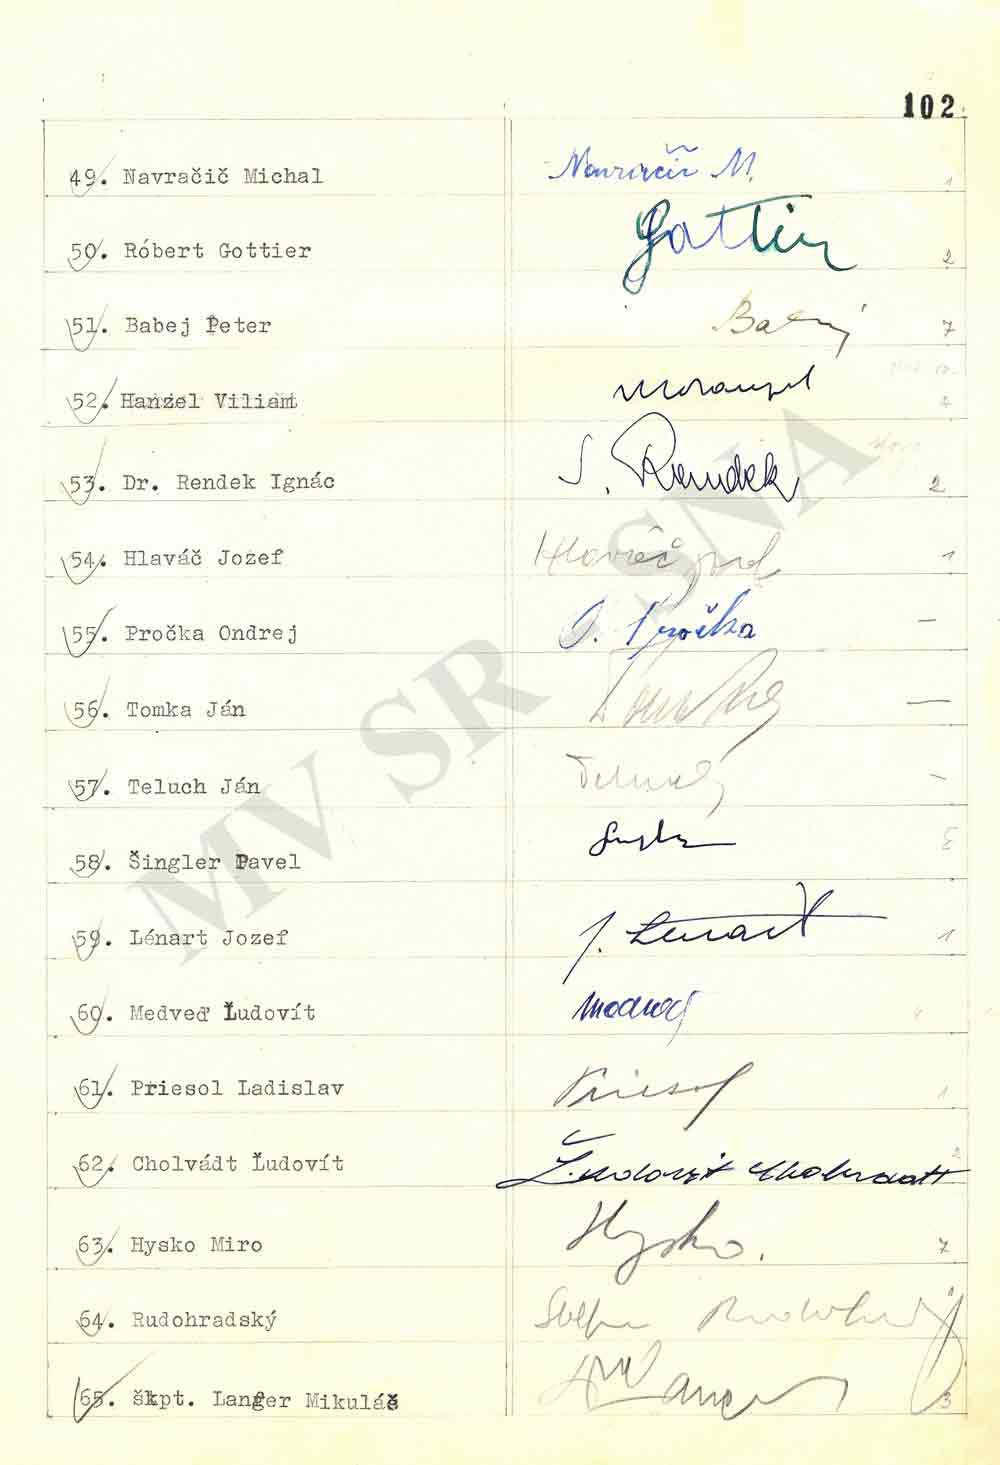 102
49. Navračič Michal Navračič M. 1
50. Róbert Gottier Gottier 2
51. Babej Peter Babej 7
52. Hanzel Viliam
53. Dr. Rendek Ignác I. Rendek 2
54. Hlaváč Jozef Hlaváč Jozef 1
55. Pročka Ondrej O. Pročka —
56. Tomka Ján Tomka —
57. Teluch Ján Teluch —
58. Šingler Pavel
59. Lénart Jozef J. Lenart 1
60. Medveď Ľudovít Medveď
61. Priesol Ladislav Priesol 1
62. Cholvádt Ľudovít Ľudovít Cholvadt 2
63. Hysko Miro Hysko. 7
64. Rudohradský
65. škpt. Langer Mikuláš Langer 3
MV SR SNA